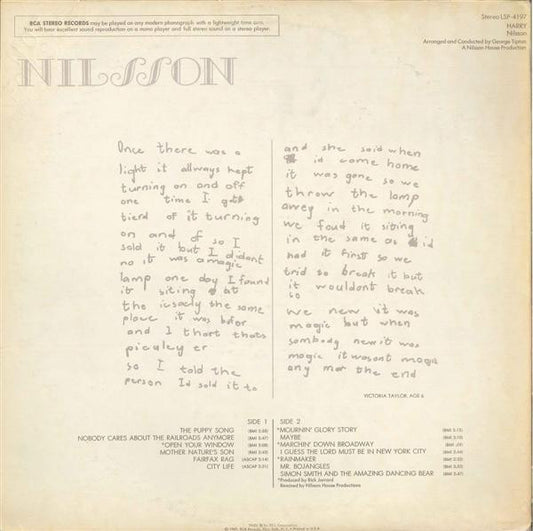 RCA STEREO RECORDS may be played on any modern phonograph with a lightweight tone arm.
You will hear excellent sound reproduction on a mono player and full stereo sound on a stereo player.
Stereo LSP-4197
HARRY
Nilsson
Arranged and Conducted by George Tipton
A Nilsson House Production
NILSSON
Once there was a
light it allways kept
turning on and off
one time I got
tierd of it turning
on and of so I
sold it but I didant
no it was a magic
lamp one day I found
it siting at
the icsacly the same
place it was befor
and I thort thats
piculey er
so I told the
person I'd sold it to
and she said when
id come home
it was gone so we
throw the lamp
awey in the morning
we foud it siting
in the same as id
had it first so we
trid so break it but
it wouldont break
so
we new it was
magic but when
sombody new it was
magic it wasont magic
any mor the end
VICTORIA TAYLOR, AGE 6
SIDE 1
THE PUPPY SONG
NOBODY CARES ABOUT THE RAILROADS ANYMORE
*OPEN YOUR WINDOW
MOTHER NATURE'S SON
FAIRFAX RAG
CITY LIFE
SIDE 2
*MOURNIN' GLORY STORY
MAYBE
*MARCHIN' DOWN BROADWAY
I GUESS THE LORD MUST BE IN NEW YORK CITY
*RAINMAKER
MR. BOJANGLES
SIMON SMITH AND THE AMAZING DANCING BEAR
*Produced by Rick Jarrard
Remixed by Nilsson House Productions